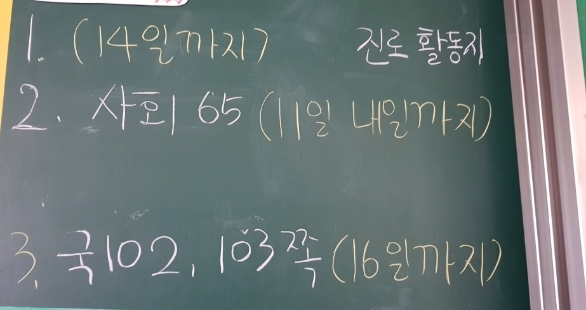 1. (14일까지) 진로 활동지
2. 사회 65 (11일 내일까지)
3. 국102, 103쪽 (16일까지)